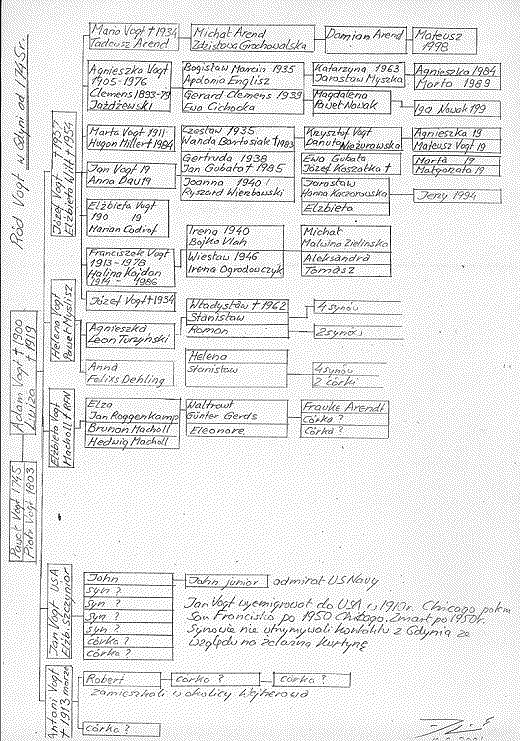 Ród Vogt w Gdyni od 1745r.
Paweł Vogt 1745
Piotr Vogt 1803
Adam Vogt † 1900
Luiza † 1919
Józef Vogt † 1957
Elżbieta Witt † 1954
Maria Vogt † 1934
Tadeusz Arend
Michał Arend
Zdzisława Grochowalska
Damian Arend
Mateusz
1998
Agnieszka Vogt
1905-1976
Clemens 1893-79
Jażdżewski
Bogisław Marcin 1935
Apolonia Englisz
Katarzyna 1963
Jarosław Myszka
Agnieszka 1984
Marta 1989
Gerard Clemens 1939
Ewa Cichocka
Magdalena
Paweł Nowak
Iga Nowak 199
Marta Vogt 1911
Hugon Miller † 1984
Czesław 1935
Wanda Bartosiak † 1983
Krzysztof Vogt
Danuta Nieżurawska
Agnieszka 19
Mateusz Vogt 19
Jan Vogt 19
Anna Bau 19
Gertruda 1938
Jan Gubała † 1985
Ewa Gubała
Józef Koszałka †
Marta 19
Małgorzata 19
Joanna 1940
Ryszard Wierzbowski
Jarosław
Hanna Kaczorowska
Elżbieta
Jerzy 1994
Elżbieta Vogt
190 19
Marian
Franciszek Vogt
1913 - 1978
Halina Kajdan
1914 - 1986
Irena 1940
Bojko Vlah
Michał
Malwina Zielińska
Wiesław 1946
Irena Ogrodowczyk
Aleksandra
Tomasz
Józef Vogt † 1934
Helena Vogt
Paweł
Agnieszka
Leon Turzyński
Władysław † 1962
Stanisław
Roman
4 synów
2 synów
Anna
Feliks Dehling
Helena
Stanisław
4 synów
2 córki
Elżbieta Vogt
Macholl † RFN
Elza
Jan Roggenkamp
Brunon Macholl
Hedwig Macholl
Waltraut
Günter Gerds
Eleonare
Frauke Arendt
córka ?
córka ?
Jan Vogt USA
Elżb. Szczypior
John
syn ?
syn ?
syn ?
syn ?
córka ?
córka ?
John junior admirał US Navy
Jan Vogt wyemigrował do USA w 1913r. Chicago potem
San Francisko po 1950 Chicago. Zmarł po 1950r.
Synowie nie utrzymywali kontaktu z Gdynią ze
względu na żelazną kurtynę
Antoni Vogt
† 1913 morze
Robert
córka ?
córka ?
zamieszkali w okolicy Wejherowa
córka ?